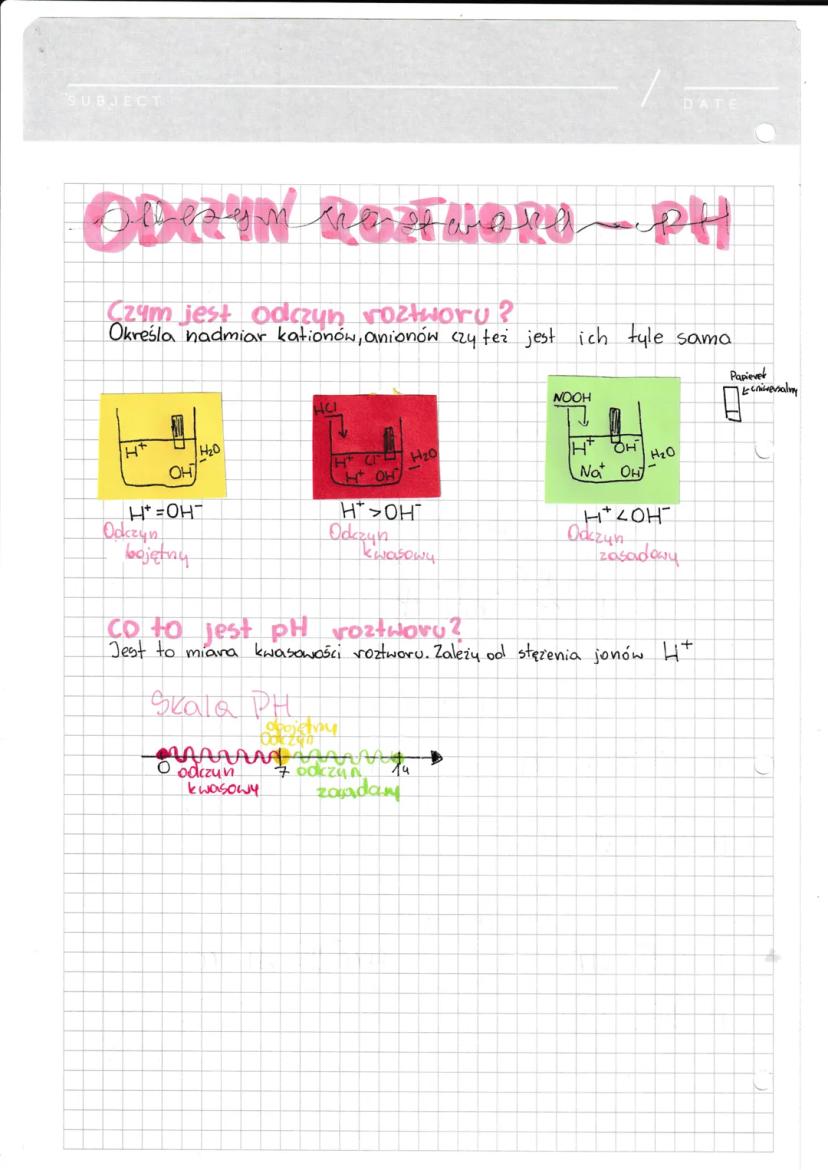 SUBJECT
DATE
ODCZYN ROZTWORU - PH
Czym jest odczyn roztworu?
Określa nadmiar kationów, anionów czy też jest ich tyle sama
Papierek
uniwersalny
H⁺
OH⁻
H₂O
H⁺=OH⁻
Odczyn
bojętny
HCl
H⁺ Cl⁻
H⁺ OH⁻
H₂O
H⁺>OH⁻
Odczyn
kwasowy
NOOH
H⁺ OH⁻
Na⁺ OH⁻
H₂O
H⁺<OH⁻
Odczyn
zasadowy
CO to jest pH roztworu?
Jest to miara kwasowości roztworu. Zależy od stężenia jonów H⁺
Skala PH
obojętny
Odczyn
0 7 14
odczyn
kwasowy
odczyn
zasadowy